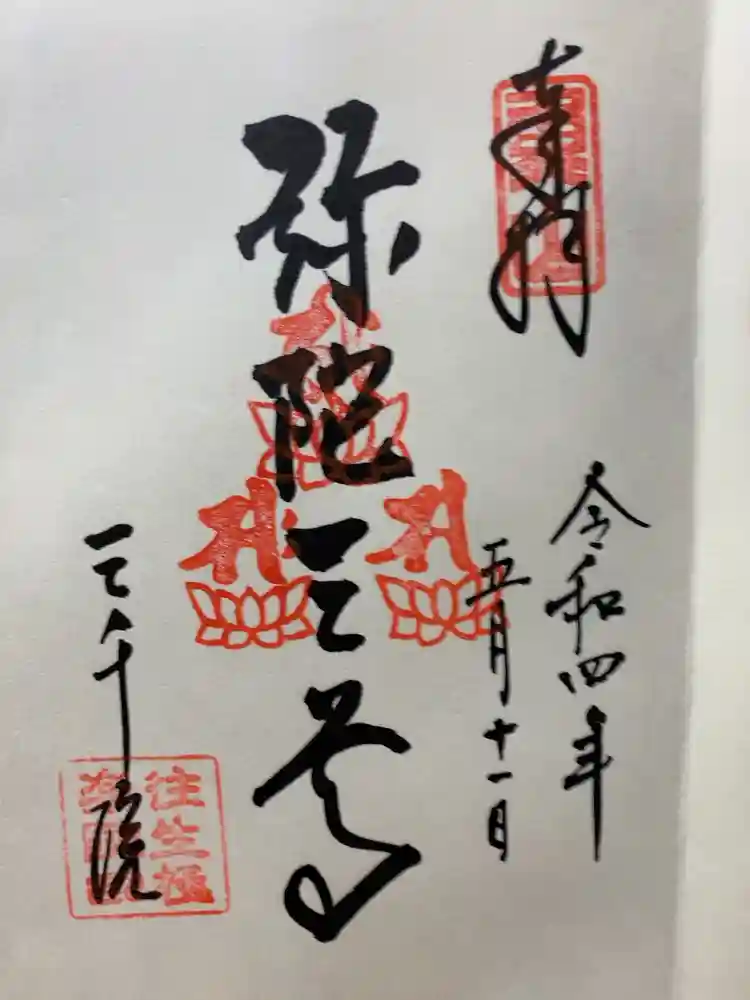 奉拝
令和四年
五月十一日
弥陀三尊
三千院
往生極